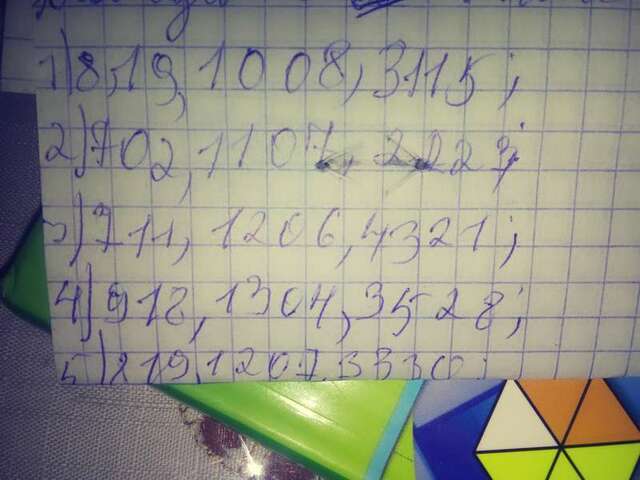 1) 8,19, 1008, 3115;
2) 702, 1107, 2223;
3) 711, 1206, 4321;
4) 918, 1304, 3528;
5) 819, 1207, 3330;